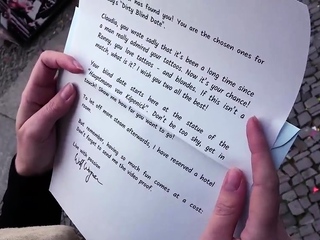 has found you! You are the chosen ones for
"Dirty Blind Date".
Claudia, you wrote sadly that it's been a long time since
a man really admired your tattoos. Now it's your chance!
Ronny, you love tattoos - and blondes. If this isn't a
match, what is it? I wish you two all the best!
Your blind date starts here at the statue of the
"Hauptmann von Köpenick". Don't be too shy, get in
touch! Show me how far you want to go!
To let off more steam afterwards, I have reserved a hotel
room
But remember, having so much fun comes at a cost:
Don't forget to send me the video proof.
Love with passion
Wolf Wagner